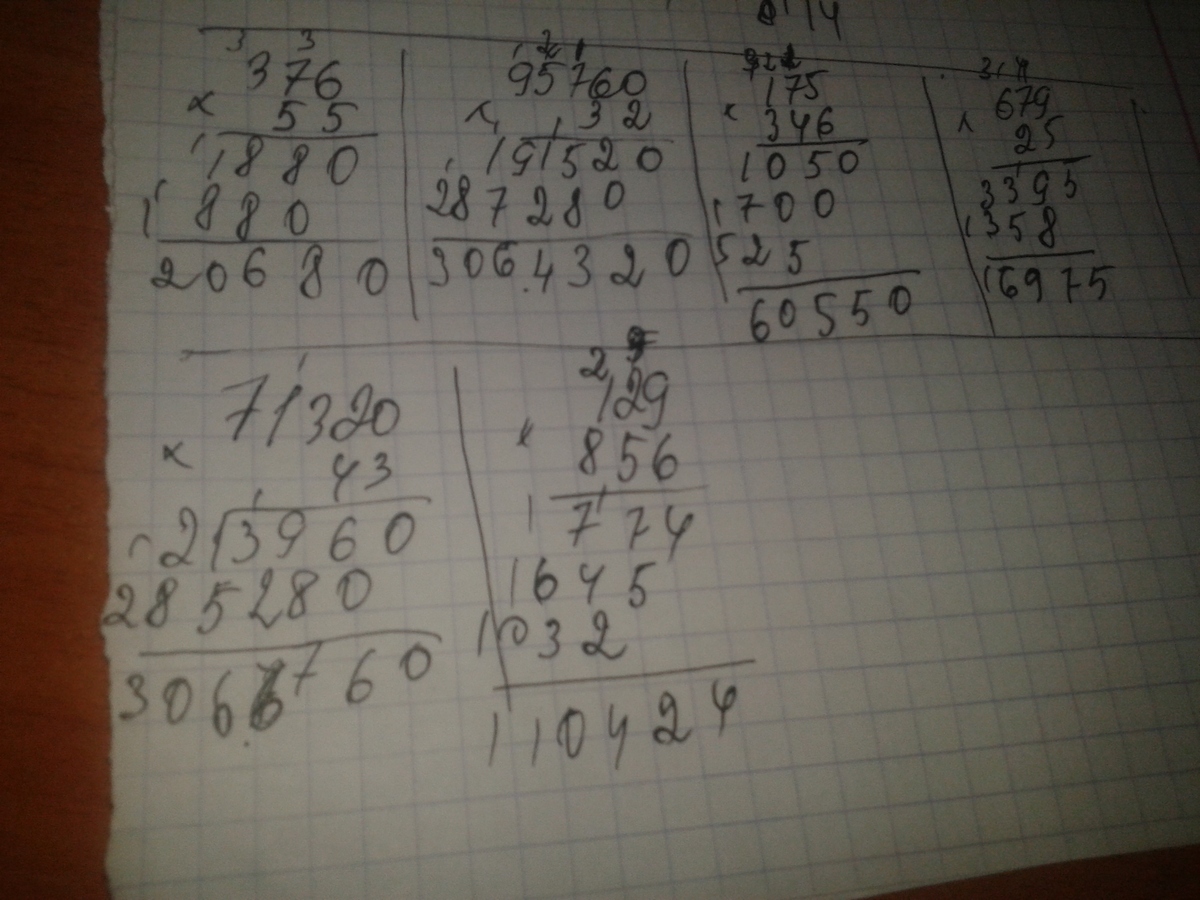 14
3 3
376
× 55
1 1
1880
1
1880
20680
1 2 1
95760
× 32
1
191520
1
287280
3064320
175
× 346
1050
1700
525
60550
3 4
679
× 25
1
3395
1358
16975
1
71320
× 43
1
213960
1
285280
306 760
2
129
× 856
1
774
1
1645
1032
110424